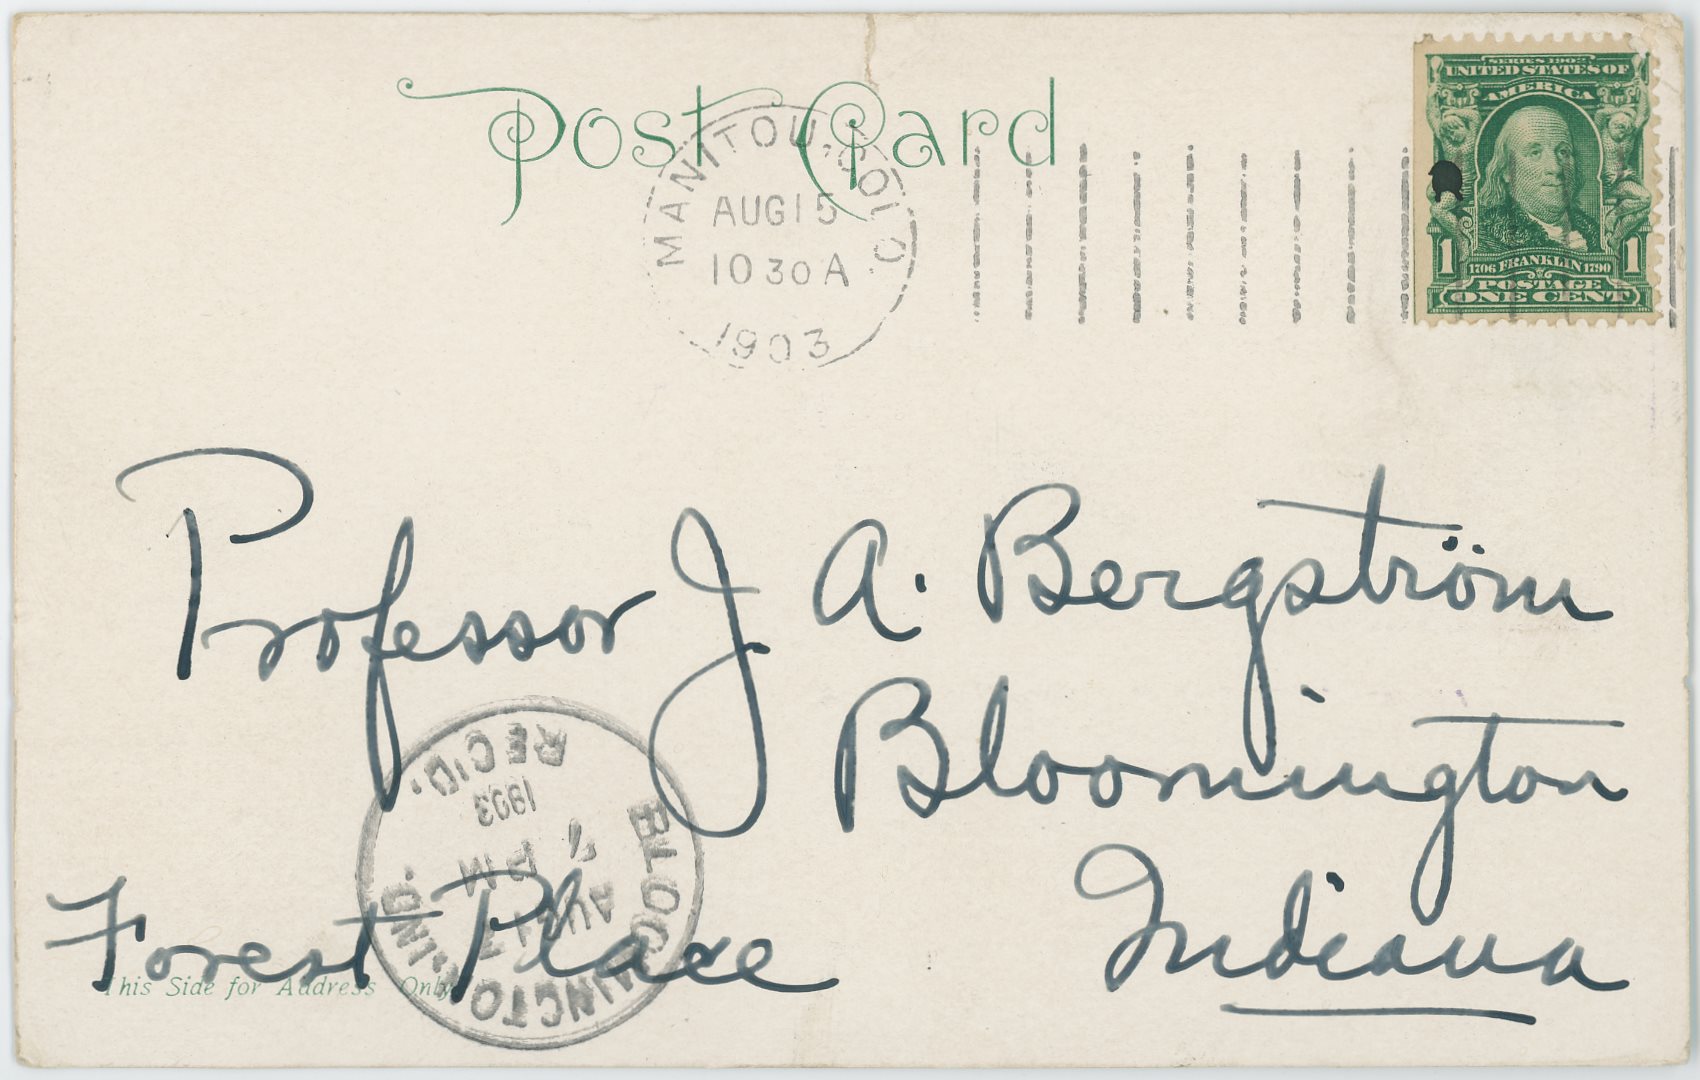 Post Card
MANITOU, COLO.
AUG 15
10 30 A
1903
SERIES 1902
UNITED STATES OF
AMERICA
1706 FRANKLIN 1790
1 1
POSTAGE
ONE CENT
Professor J. A. Bergström
Bloomington
Indiana
Forest Place
BLOOMINGTON, IND.
AUG
PM
1903
REC'D.
This Side for Address Only